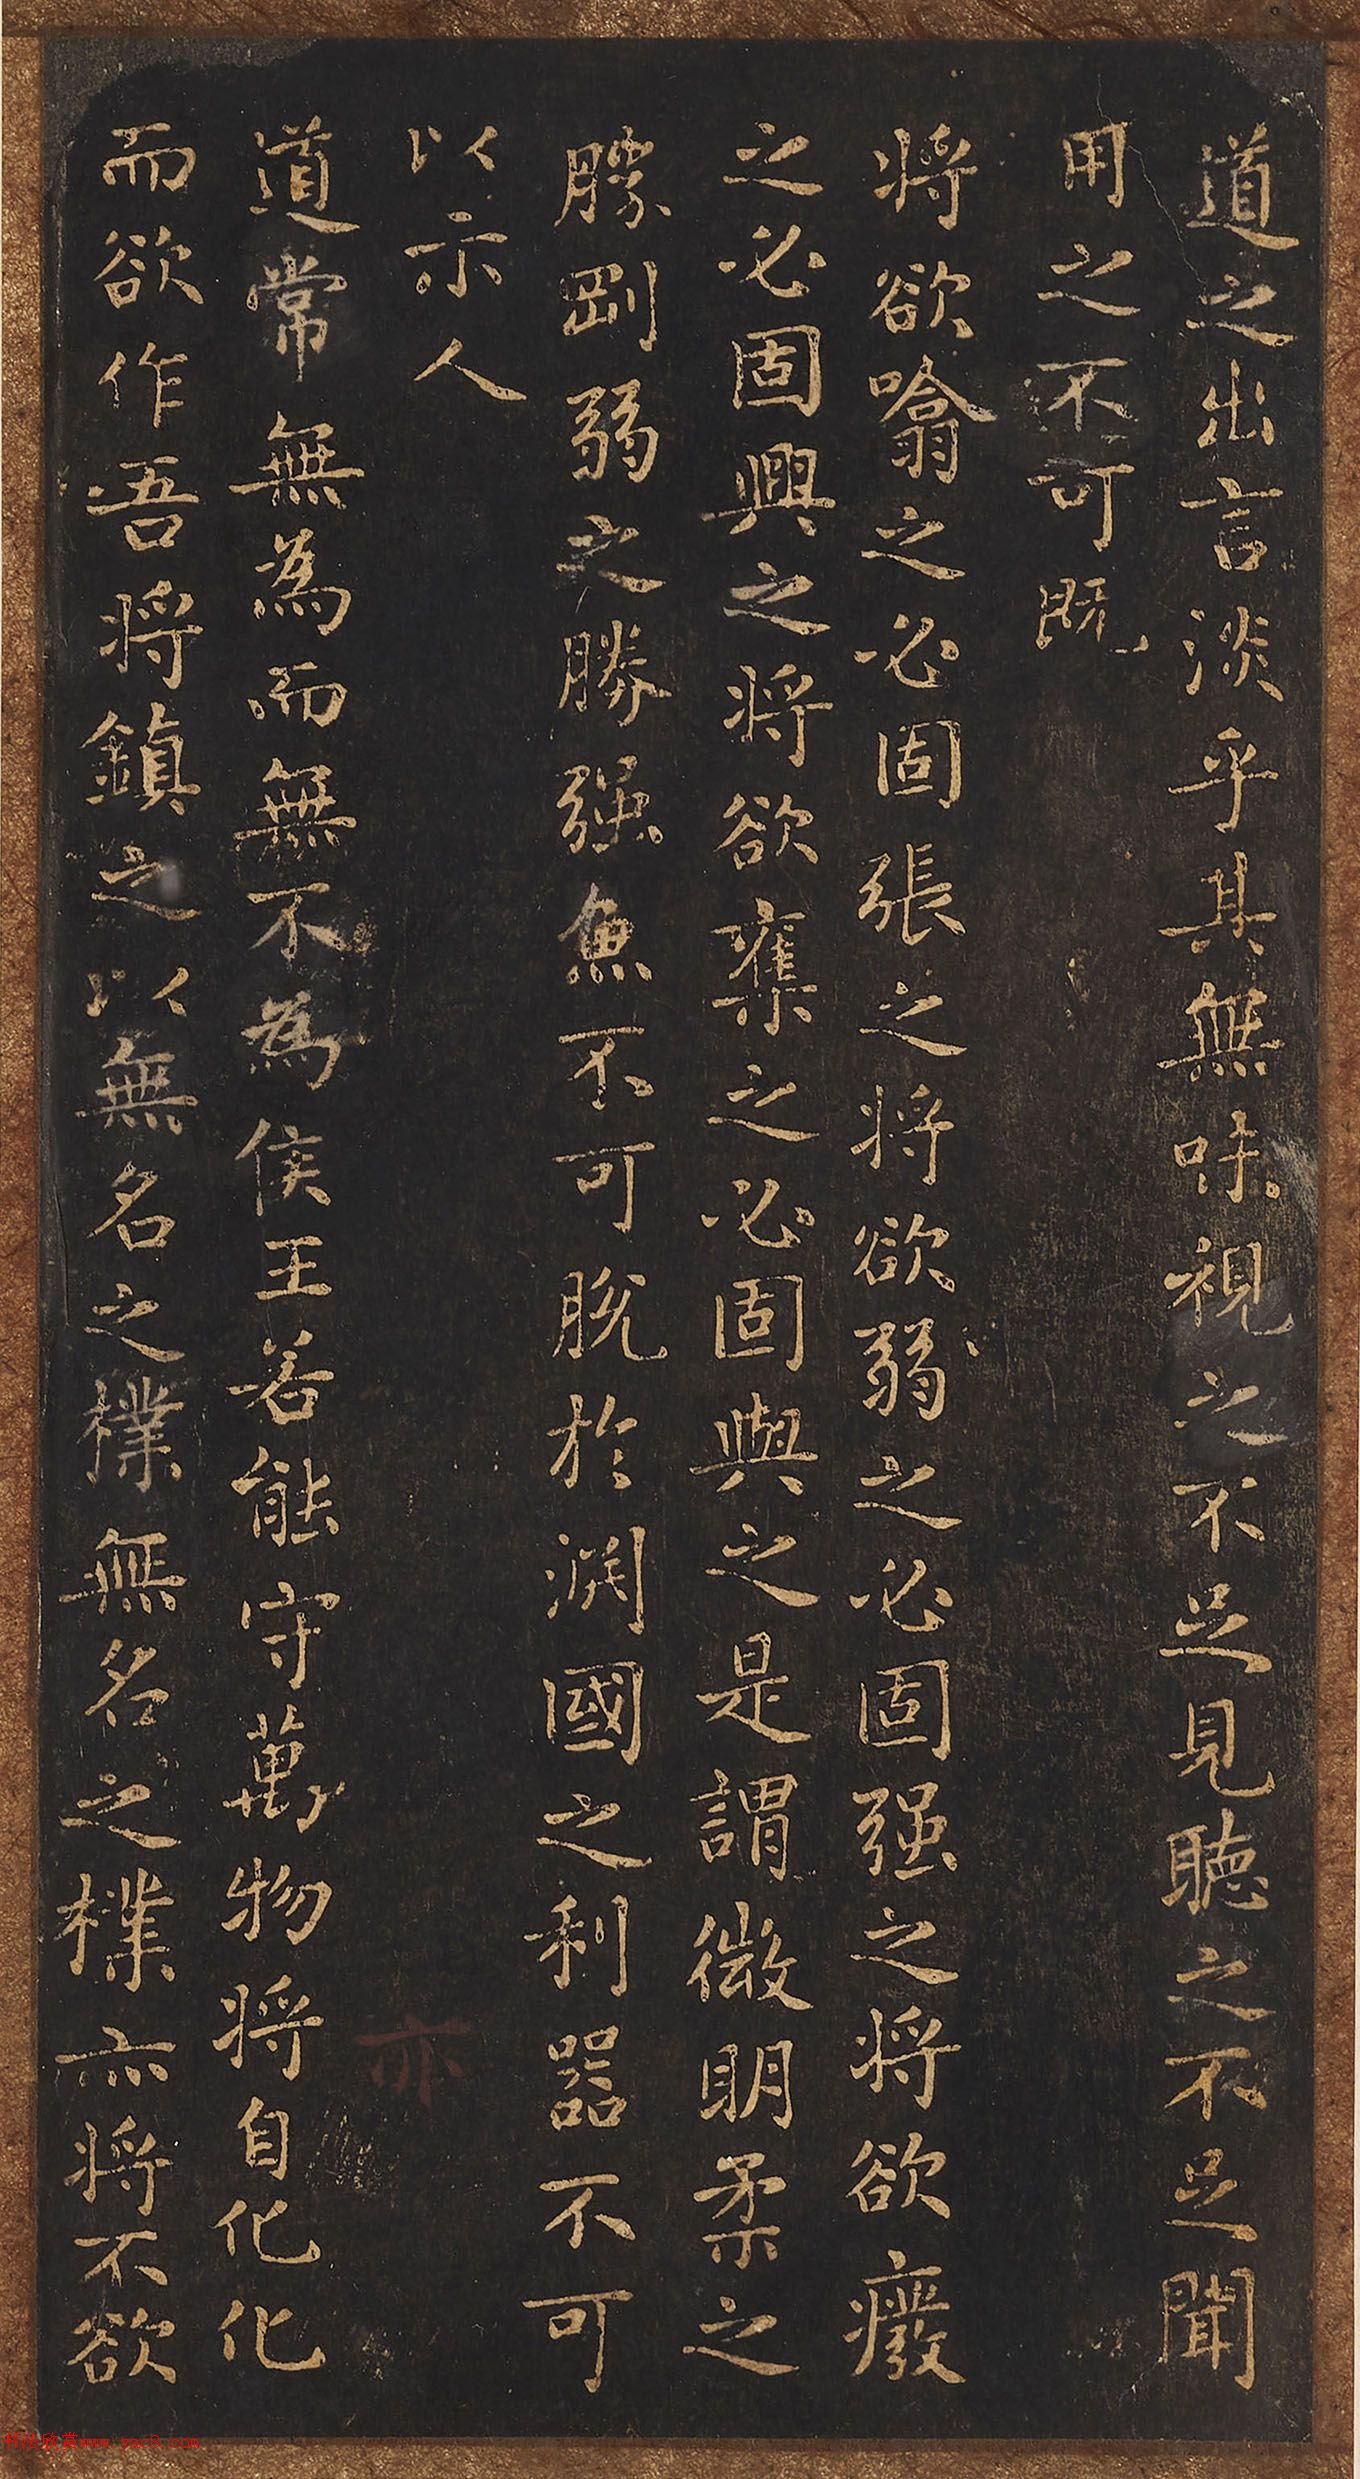 道之出言淡乎其無味視之不足見聽之不足聞
用之不可既
將欲噏之必固張之將欲弱之必固强之將欲癈
之必固興之將欲奪之必固與之是謂微眀柔之
勝剛弱之勝强魚不可脫於渕國之利器不可
以示人
亦
道常無為而無不為侯王若能守萬物將自化化
而欲作吾將鎮之以無名之樸無名之樸亦將不欲
书法欣赏www.yac8.com